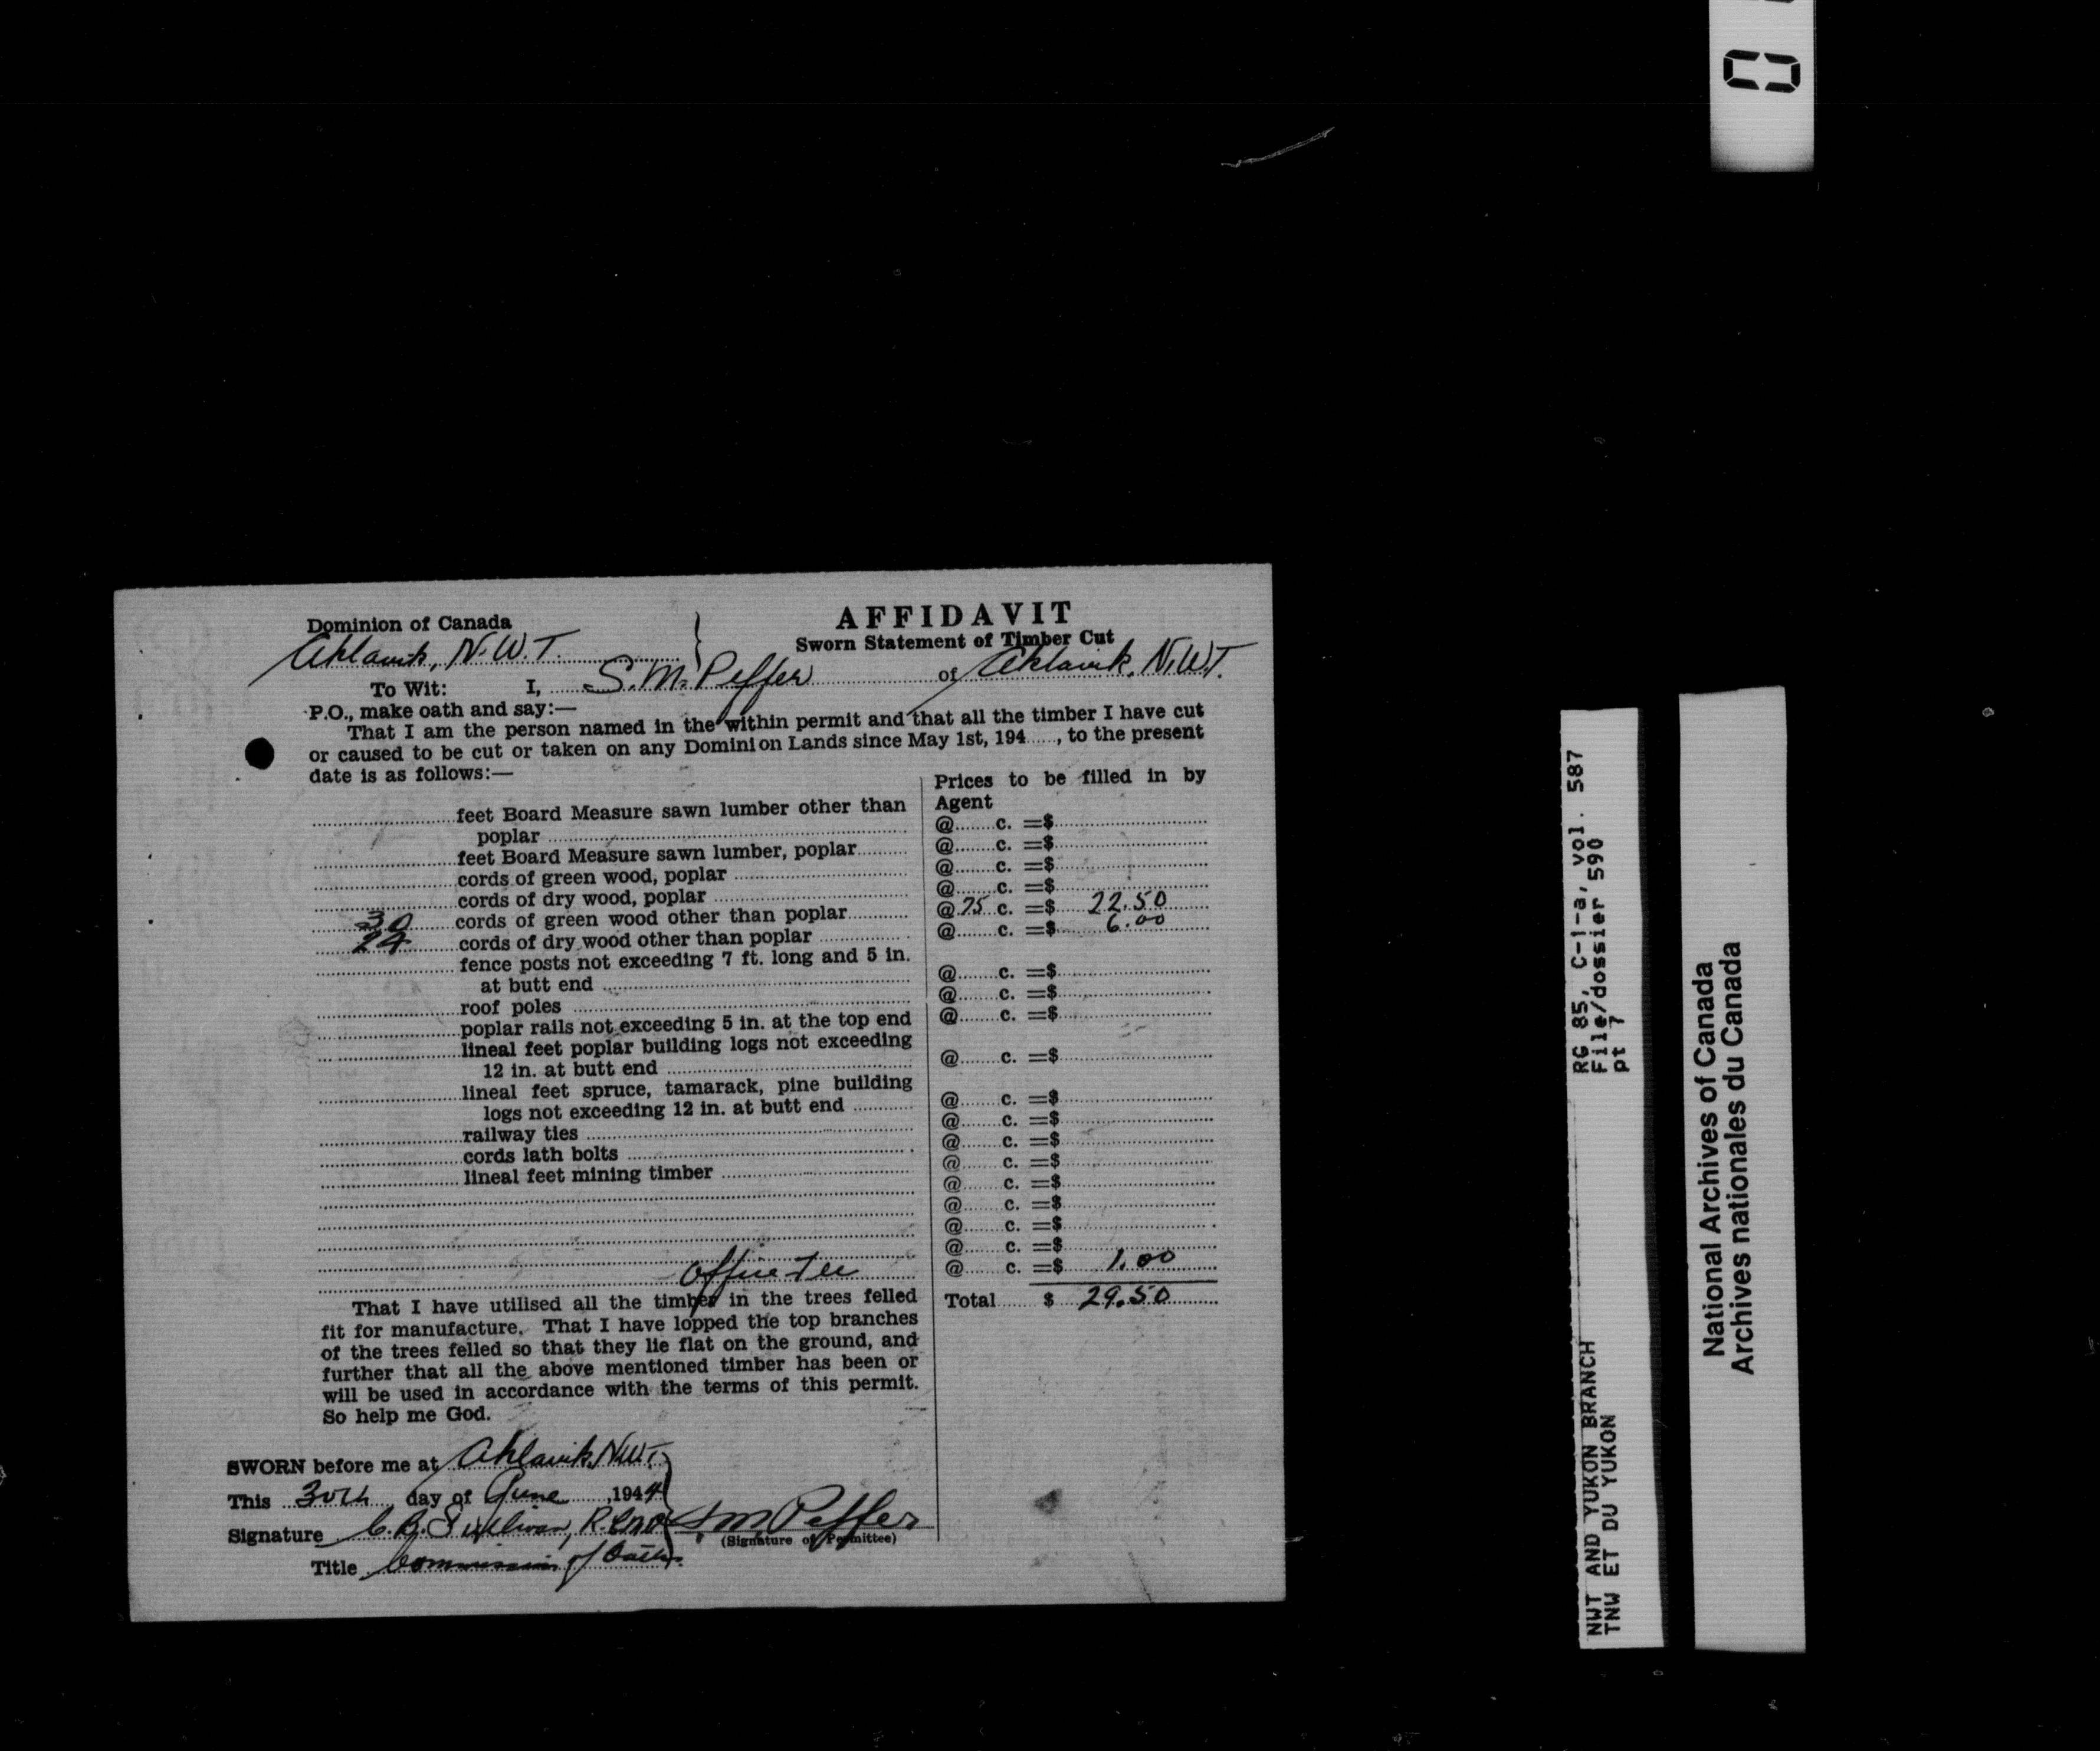 Dominion of Canada
Aklavik, N.W.T.
AFFIDAVIT
Sworn Statement of Timber Cut
To Wit: I, S. M. Peffer of Aklavik, N.W.T.
P.O., make oath and say:—
That I am the person named in the within permit and that all the timber I have cut
or caused to be cut or taken on any Dominion Lands since May 1st, 194......, to the present
date is as follows:—
Prices to be filled in by
Agent
feet Board Measure sawn lumber other than
poplar @ c. =$
feet Board Measure sawn lumber, poplar @ c. =$
cords of green wood, poplar @ c. =$
cords of dry wood, poplar @ c. =$
30 cords of green wood other than poplar @ 75 c. =$ 22.50
24 cords of dry wood other than poplar @ c. =$ 6.00
fence posts not exceeding 7 ft. long and 5 in.
at butt end @ c. =$
roof poles @ c. =$
poplar rails not exceeding 5 in. at the top end @ c. =$
lineal feet poplar building logs not exceeding
12 in. at butt end @ c. =$
lineal feet spruce, tamarack, pine building
logs not exceeding 12 in. at butt end @ c. =$
railway ties @ c. =$
cords lath bolts @ c. =$
lineal feet mining timber @ c. =$
@ c. =$
@ c. =$
@ c. =$
@ c. =$
Office Fee @ c. =$ 1.00
Total $ 29.50
That I have utilised all the timber in the trees felled
fit for manufacture. That I have lopped the top branches
of the trees felled so that they lie flat on the ground, and
further that all the above mentioned timber has been or
will be used in accordance with the terms of this permit.
So help me God.
SWORN before me at Aklavik, N.W.T.
This 30th day of June, 1944
Signature Sullivan, S M Peffer
(Signature of Permittee)
Title Commissioner of Oaths
RG 85, C-1-a, vol. 587
File/dossier 590
pt 7
NWT AND YUKON BRANCH
TNW ET DU YUKON
National Archives of Canada
Archives nationales du Canada